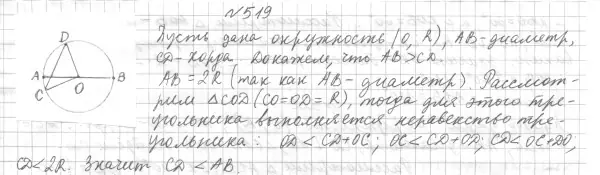 №519
Пусть дана окружность (О, R), АВ-диаметр,
CD-хорда. Докажем, что АВ>CD.
АВ = 2R (так как АВ - диаметр). Рассмот-
рим △COD (CO=OD=R), тогда для этого тре-
угольника выполняется неравенство тре-
угольника: OD < CD+OC; OC < CD+OD; CD < OC+DO,
CD<2R. Значит CD < AB.
D
A
O
B
C